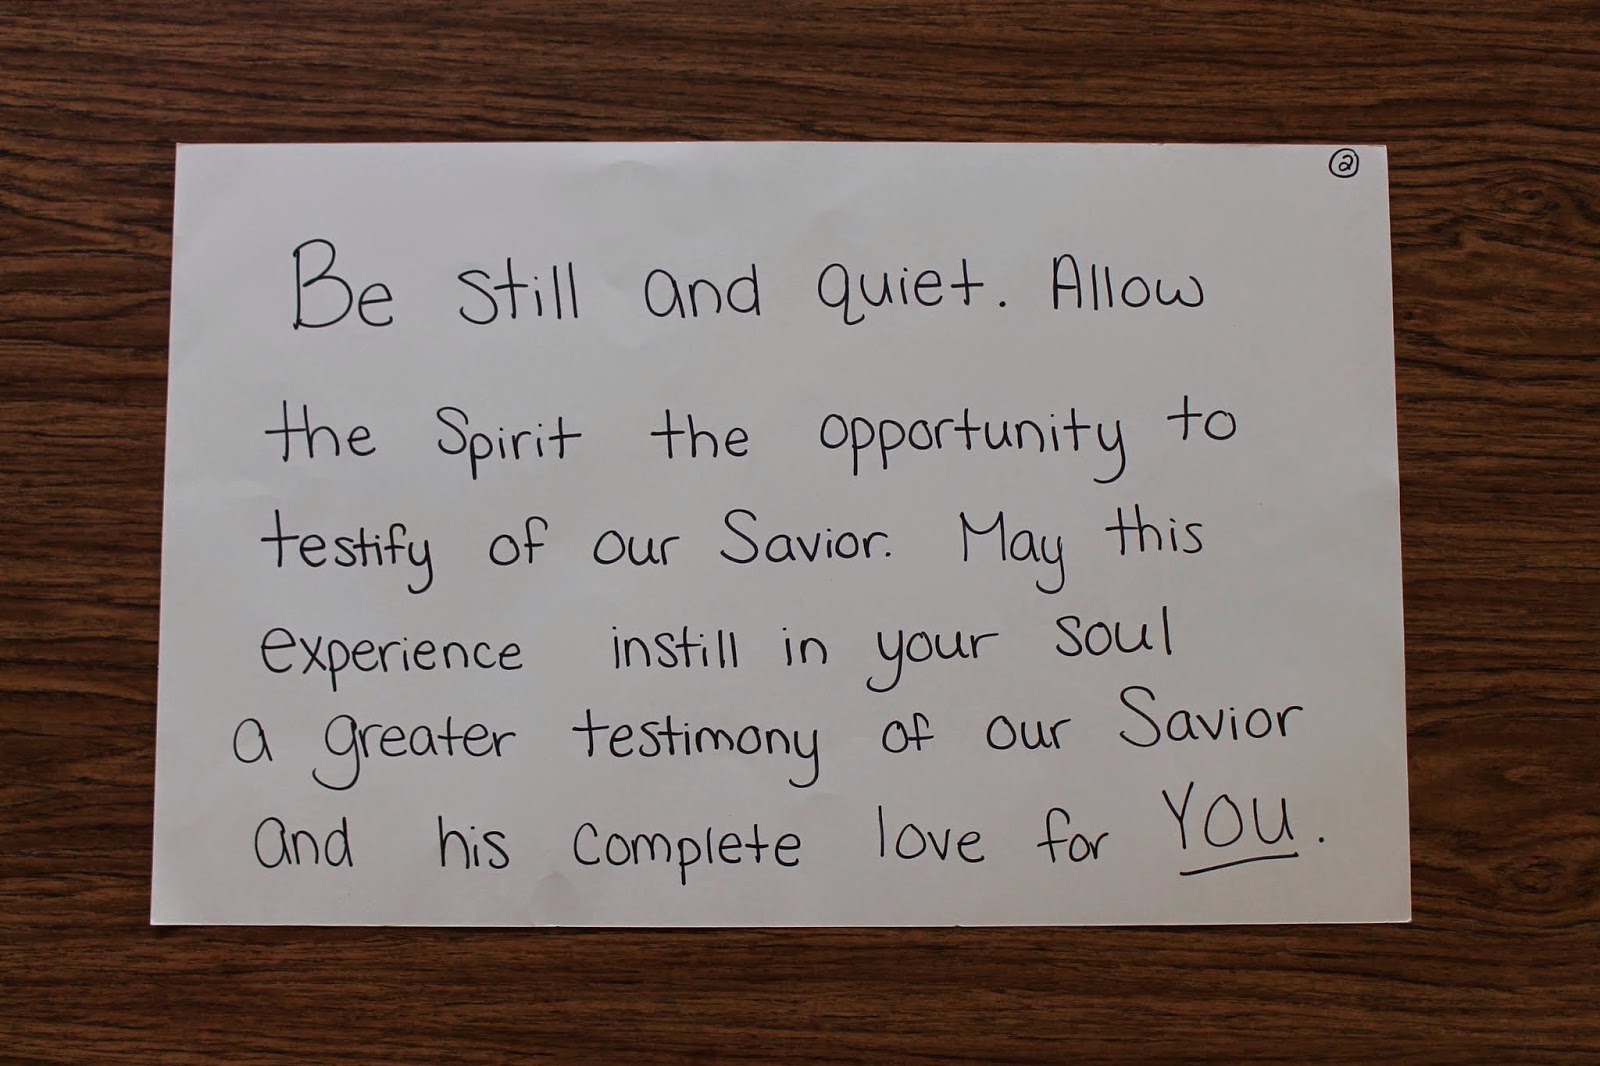 ②
Be still and quiet. Allow
the Spirit the opportunity to
testify of our Savior. May this
experience instill in your soul
a greater testimony of our Savior
and his complete love for YOU.